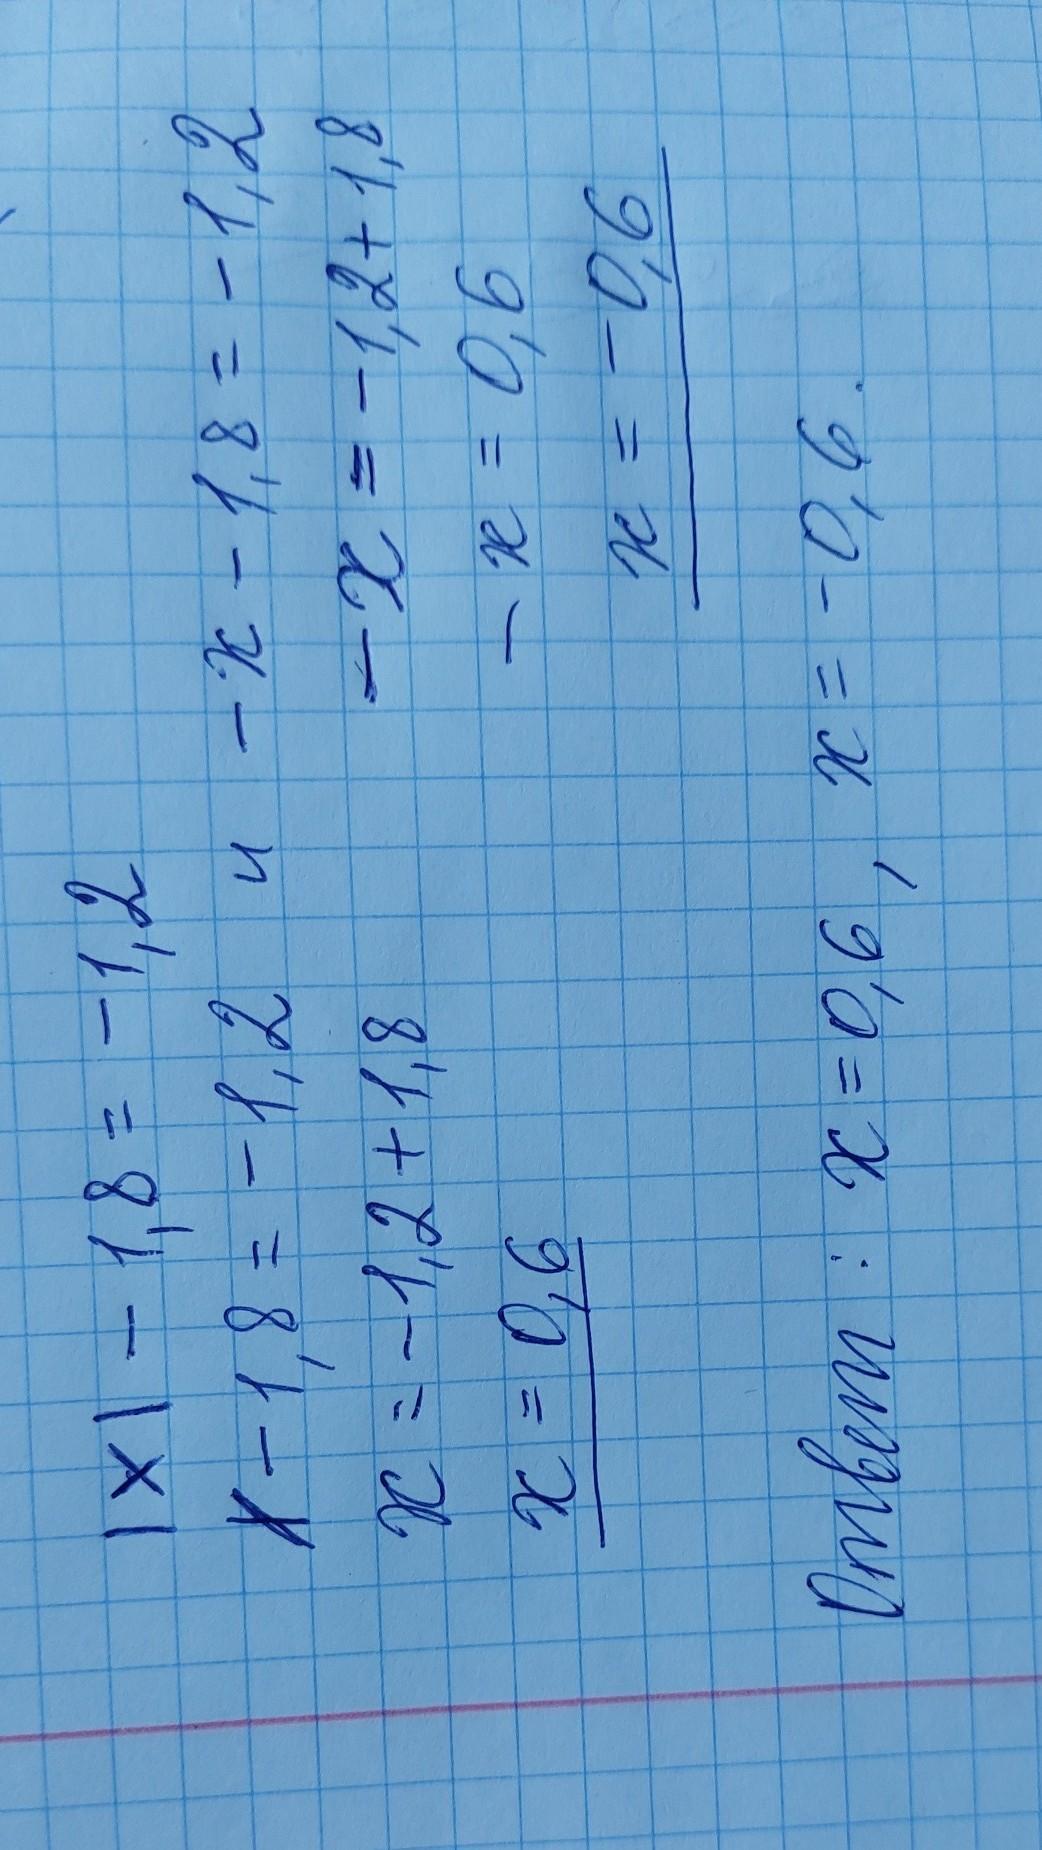 |x| - 1,8 = -1,2
x - 1,8 = -1,2 и -x - 1,8 = -1,2
x = -1,2 + 1,8 -x = -1,2 + 1,8
x = 0,6 -x = 0,6
x = -0,6
Ответ: x = 0,6, x = -0,6.